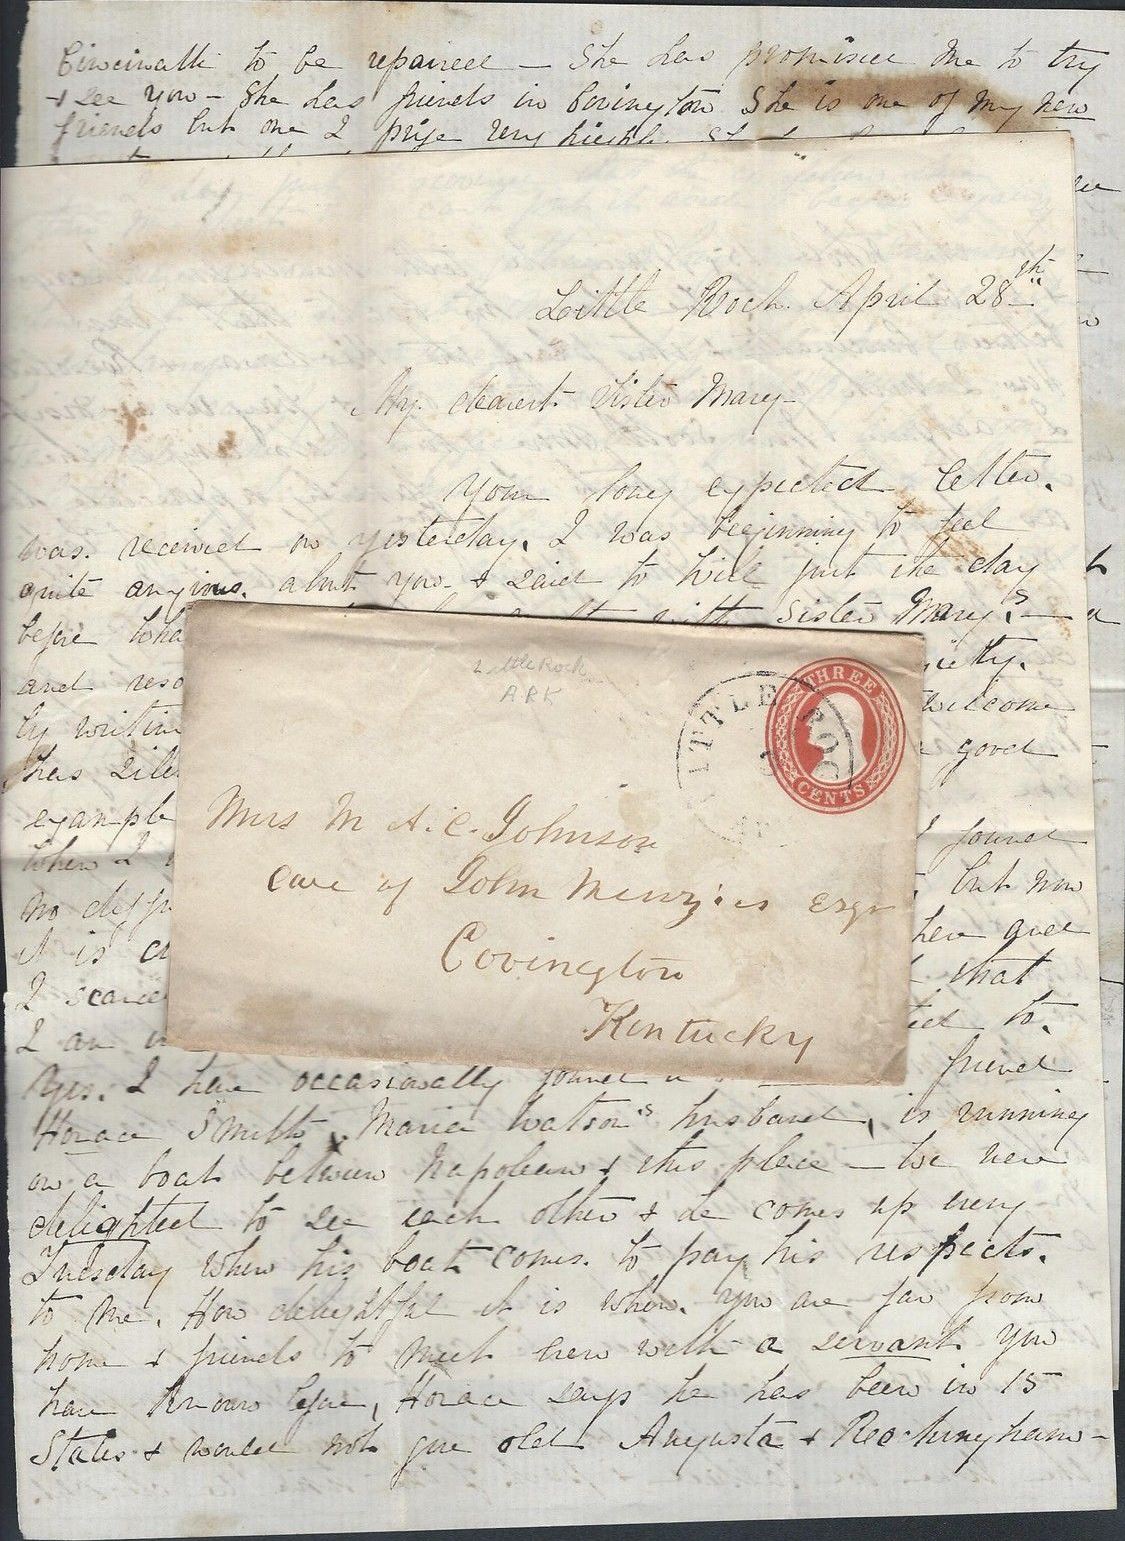 Cincinatti to be repaired - She has promised me to try
+ see you - She has friends in Covington She is one of my new
friends but one I prize very
Little Rock April 28th
My dearest Sister Mary -
Your long expected letter.
was. received on yesterday. I was beginning to feel
quite anxious. about you - + said to Will just the day
before wha with Sister Mary? -
and reso iety.
ly writin welcome
has sile good
exampl
when I found
no diffi but now
it is here and
I scarce that
I am to.
Yes. I have occasionally found a friend
Horace Smith, Maria Watson's husband, is running
on a boat between Napolean + this place - We were
delighted to see each other + he comes up every
Tuesday when his boat comes. to pay his respects.
to me. How delightful it is when. you are far from
home + friends to meet even with a servant you
have known before, Horace says he has been in 15
States + would not give old Augusta + Rockingham -
Little Rock
ARK
LITTLE ROC
THREE
CENTS
Mrs M A. C. Johnson
Care of John Menzies Esqr
Covington
Kentucky